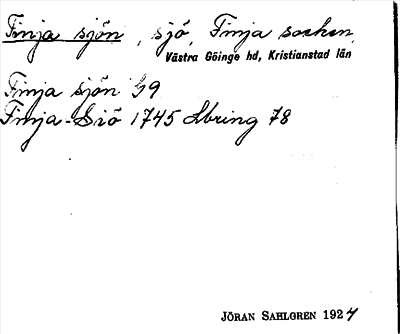 Finja sjön, sjö, Finja socken,
Västra Göinge hd, Kristianstad län
Finja sjön 59
Finja-Siö 1745 Abring 78
JÖRAN SAHLGREN 1924